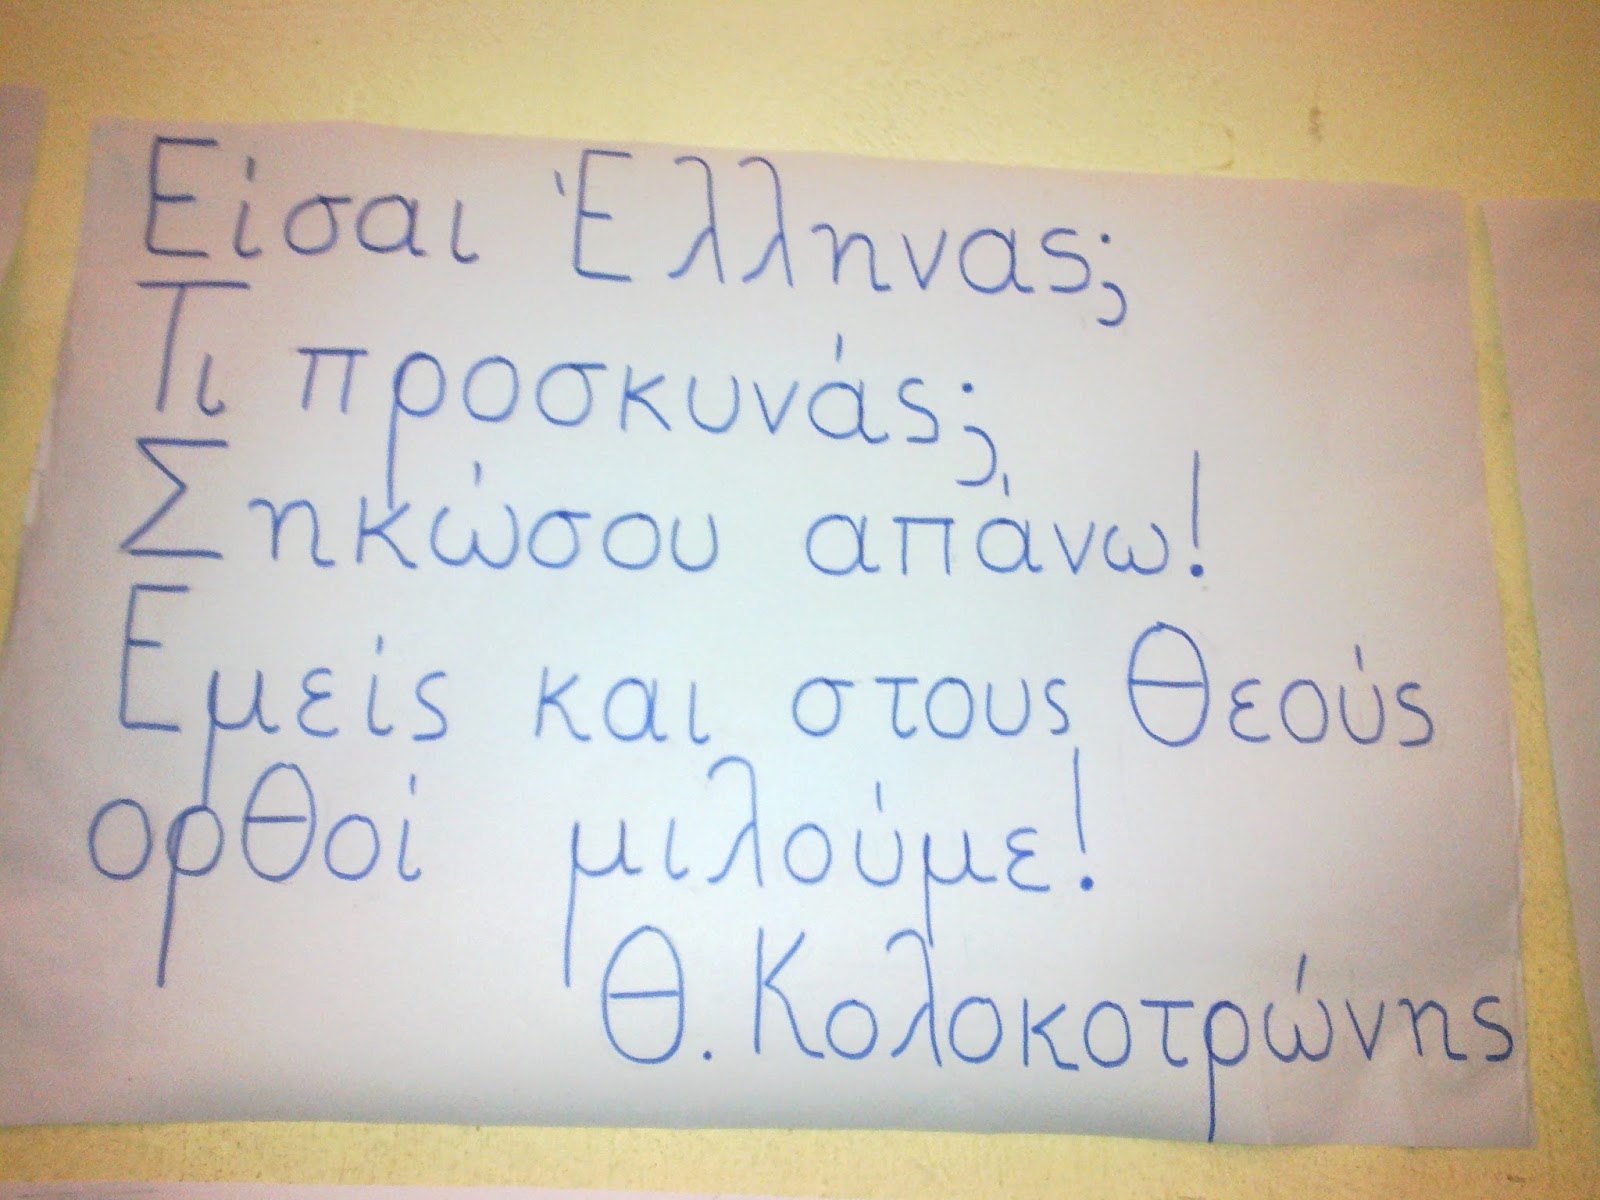 Είσαι Έλληνας;
Τι προσκυνάς;
Σηκώσου απάνω!
Εμείς και στους Θεούς
ορθοί μιλούμε!
Θ. Κολοκοτρώνης